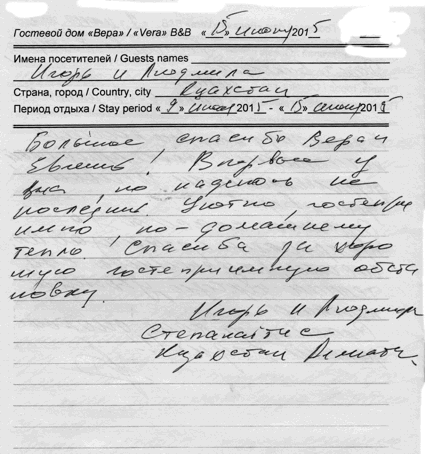 Гостевой дом «Вера» / «Vera» B&B « 15 » июня 2015
Имена посетителей / Guests names
Игорь и Людмила
Страна, город / Country, city Казахстан
Период отдыха / Stay period « 9 » июня 2015 - « 15 » июня 2015
Большое, спасибо Вера и
Евгений! Впервые у
вас, но надеюсь не
последний. Уютно, гостепри
имно, по-домашнему
тепло! Спасиба за хоро
шую гостеприимную обста
новку.
Игорь и Людмила
Степанайтис
Казахстан Алматы.